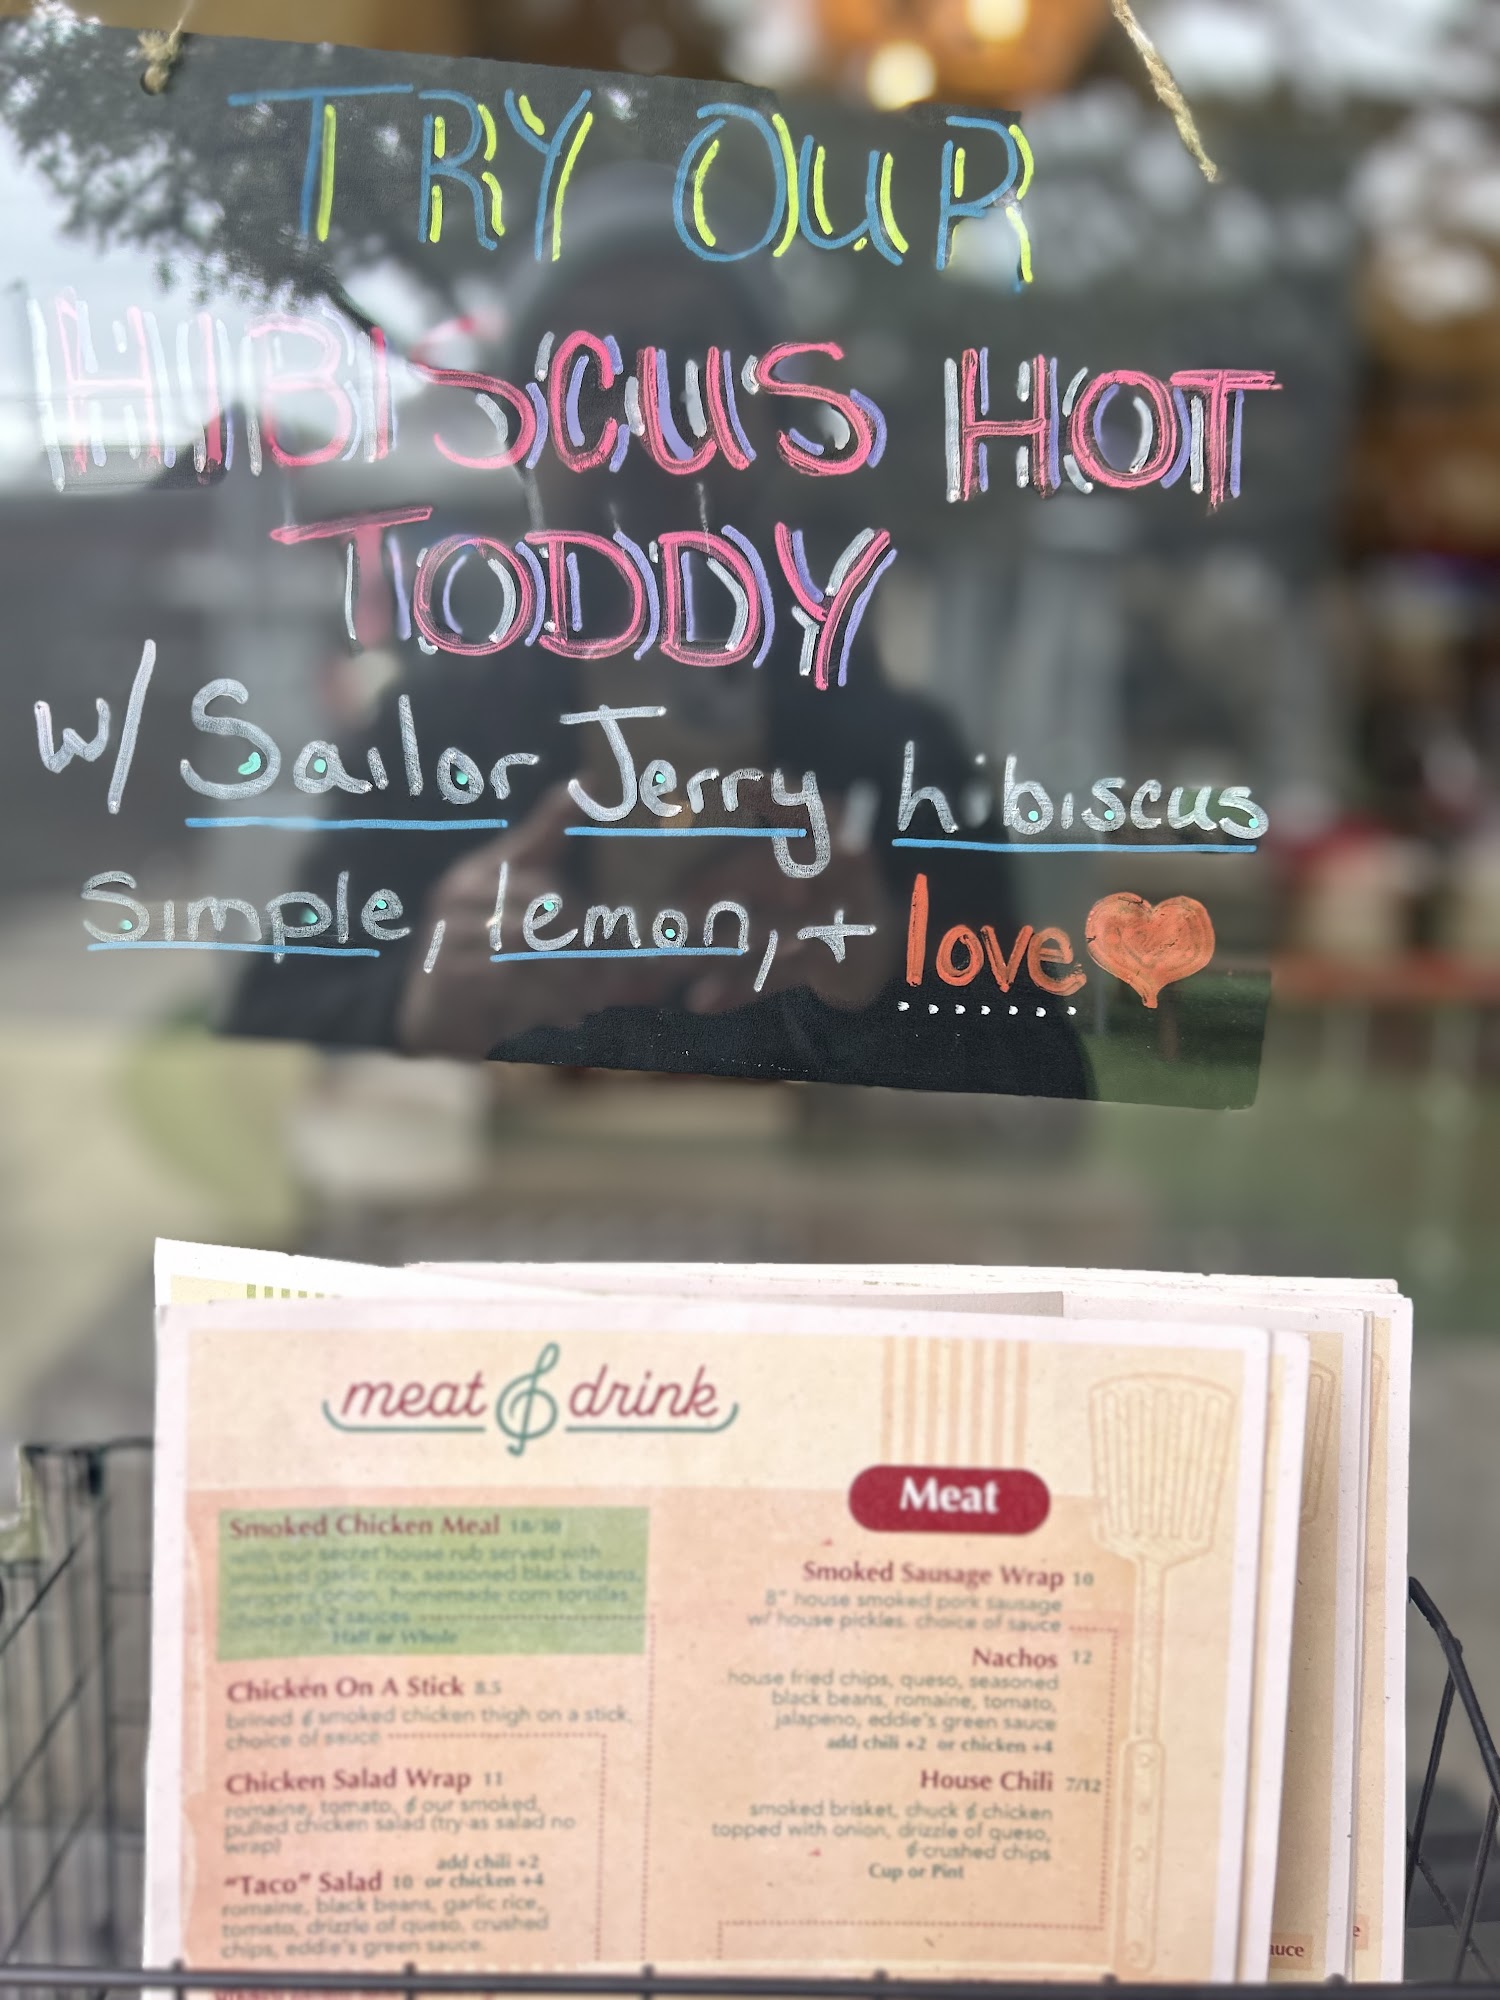 TRY OUR
HIBISCUS HOT
TODDY
w/ Sailor Jerry, hibiscus
Simple, lemon, + love
meat & drink
Meat
Smoked Chicken Meal 18/30
with our secret house rub served with
smoked garlic rice, seasoned black beans,
pepper/onion, homemade corn tortillas,
choice of 2 sauces
Half or Whole
Chicken On A Stick 8.5
brined & smoked chicken thigh on a stick,
choice of sauce
Chicken Salad Wrap 11
romaine, tomato, & our smoked,
pulled chicken salad (try as salad no
wrap)
add chili +2
"Taco" Salad 10 or chicken +4
romaine, black beans, garlic rice,
tomato, drizzle of queso, crushed
chips, eddie's green sauce.
Smoked Sausage Wrap 10
8" house smoked pork sausage
w/ house pickles. choice of sauce
Nachos 12
house fried chips, queso, seasoned
black beans, romaine, tomato,
jalapeno, eddie's green sauce
add chili +2 or chicken +4
House Chili 7/12
smoked brisket, chuck & chicken
topped with onion, drizzle of queso,
& crushed chips
Cup or Pint